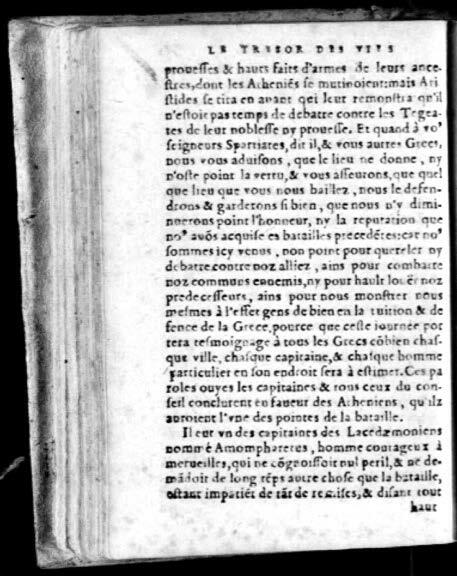 LE TRESOR DES VIES
prouesses & hauts faits d'armes de leurs ance-
stres, dont les Atheniẽs se mutinoient: mais Ari
stides se tira en auant qui leur remonstra qu'il
n'estoit pas temps de debatre contre les Tegea-
tes de leur noblesse ny prouesse. Et quand à vo'
seigneurs Spartiates, dit il, & vous autres Grecs,
nous vous aduisons, que le lieu ne donne, ny
n'oste point la vertu, & vous asseurons, que quel
que lieu que vous nous baillez, nous le defen-
drons & garderons si bien, que nous n'y dimi-
nuerons point l'honneur, ny la reputation que
no' auõs acquise es batailles precedẽtes: car no'
sommes icy venus, non point pour quereler ny
debatre contre noz alliez, ains pour combatre
noz communs ennemis, ny pour hault louër noz
predecesseurs, ains pour nous monstrer nous
mesmes à l'effet gens de bien en la tuition & de
fence de la Grece, pource que ceste iournée por
tera tesmoignage à tous les Grecs cõbien chas-
que ville, chasque capitaine, & chasque homme
particulier en son endroit sera à estimer. Ces pa
roles ouyes les capitaines & tous ceux du con-
seil conclurent en faueur des Atheniens, qu'ilz
auroient l'vne des pointes de la bataille.
Il eut vn des capitaines des Lacedæmoniens
nommé Amompharetus, homme courageux à
merueilles, qui ne cõgnoissoit nul peril, & ne de-
mãdoit de long tẽps autre chose que la bataille,
estant impatiẽt de tãt de remises, & disant tout
haut